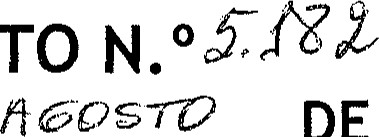 TO N.º 5.182
AGOSTO DE